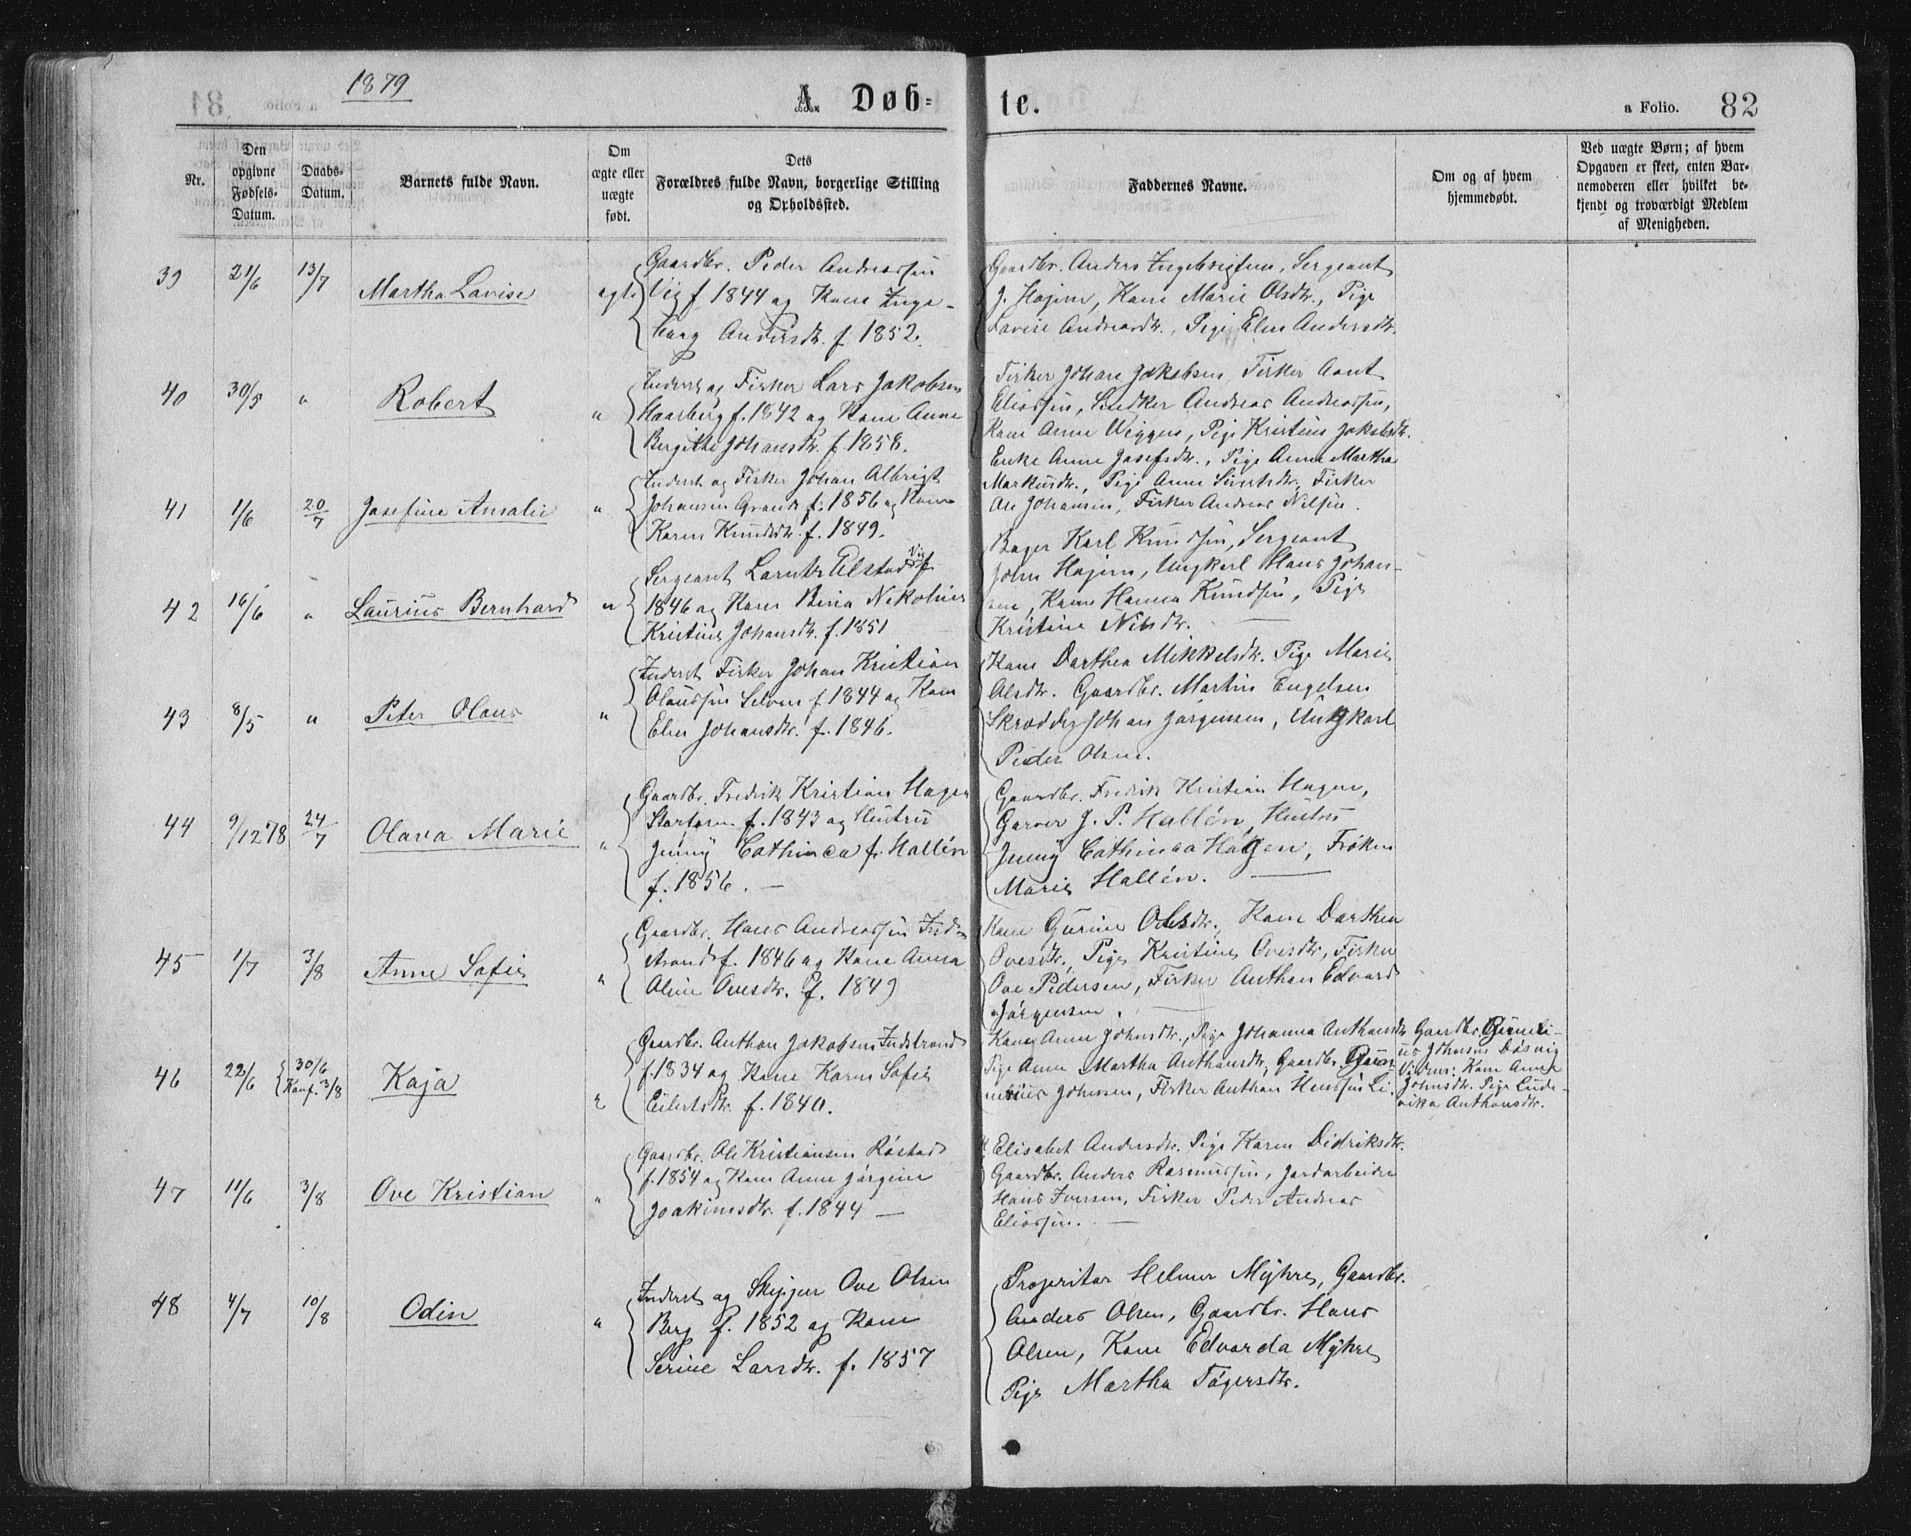 1879
A. Døb-
te.
a Folio. 82
Nr.
Den opgivne Fødsels-Datum.
Daabs-Datum.
Barnets fulde Navn.
Om ægte eller uægte født.
Dets Forældres fulde Navn, borgerlige Stilling og Opholdssted.
Faddernes Navne.
Om og af hvem hjemmedøbt.
Ved uægte Børn; af hvem Opgaven er skeet, enten Barnemoderen eller hvilket bekjendt og troværdigt Medlem af Menigheden.
39 21/6 13/7 Martha Lovise ægte
Gaardbr. Peder Andreassen
Vig f 1844 og Kone Inge-
borg Andersdtr. f. 1852.
Gaardbr. Anders Ingebrigtsen, Sergeant
J. Hojem, Kone Marie Olsdtr., Pige
Lovise Andreasdtr., Pige Elen Andersdtr.
40 30/5 " Robert "
Inderst og Fisker Lars Jakobsen
Haarberg f. 1842 og Kone Anne
Bergithe Johansdtr. f. 1858.
Fisker Johan Jakobsen, Fisker Aant
Eliassen, Snedker Andreas Andreassen,
Kone Anne Wiggen, Pige Kristine Jakobsdtr.
41 1/6 20/7 Josefine Amalie "
Inderst og Fisker Johan Albrigt
Johansen Grande f. 1856 og Kone
Karen Knudsdtr. f. 1849.
Enke Anne Josefsdtr., Pige Anne Martha
Markusdtr., Pige Anne, Fisker
Ole Johansen, Fisker Andreas Nilsen.
42 16/6 " Laurius Bernhard "
Sergeant Lornts Ulstad Vig f.
1846 og Kone Bina Nikoline
Kristine Johansdtr. f. 1851
Bager Karl Knudsen, Sergeant
John Hojem, Ungkarl Hans Johan-
sen, Kone Hanna Knudsen, Pige
Kristine Nilsdtr.
43 8/5 " Peter Olaus "
Inderst Fisker Johan Kristian
Olaussen Selven f. 1844 og Kone
Elen Johansdtr. f. 1846.
Kone Dorthea Mikkelsdtr. Pige Marie
Olsdtr. Gaardbr. Martin Engelsen
Skrædder Johan Jørgensen, Ungkarl
Peder Olsen.
44 9/12 78 24/7 Olava Marie "
Gaardbr. Fredrik Kristian Hagen
Storfosen f. 1843 og Hustru
Jenny Cathinca f. Hallén
f. 1856.
Gaardbr. Fredrik Kristian Hagen,
Garver J. P. Hallén, Hustru
Jenny Cathinca Hagen, Frøken
Marie Hallén.
45 1/7 3/8 Anne Sofie "
Gaardbr. Hans Andreassen Ind-
strand f. 1846 og Kone Anna
Oline Ovesdtr. f. 1849
Kone Gurine Olsdtr., Kone Dorthea
Ovesdtr., Pige Kristine Ovesdtr, Fisker
Ove Pedersen, Fisker Anthon Edvard
Jørgensen.
46 22/6 30/6 Konf. 3/8 Kaja "
Gaardbr. Anthon Jakobsen Indstrand
f. 1834 og Kone Karen Sofie
Eilertsdtr. f. 1840.
Kone Anne Johnsdtr., Pige Johanna Anthonsdtr
Pige Anne Martha Anthonsdtr, Gaardbr.
Johnsen, Fisker Anthon
Gaardbr.
Johnsen Døsvig
Vidne: Kone Anne
Johnsdtr. Pige Lude-
vika Anthonsdtr.
47 11/6 3/8 Ove Kristian "
Gaardbr. Ole Kristiansen Røstad
f. 1854 og Kone Anne Jørgine
Joakimsdtr. f. 1844
K. Elisabet Andersdtr. Pige Karen Didriksdtr.
Gaardbr. Anders Rasmussen, Jordarbeider
Hans Iversen, Fisker Peder Andreas
Eliassen.
48 4/7 10/8 Odin "
Inderst og Skipper Ove Olsen
Berg f. 1852 og Kone
Serine Larsdtr. f. 1857
Propritær Helmer Myhre, Gaardbr.
Anders Olsen, Gaardbr. Hans
Olsen, Kone Edvarda Myhre
Pige Martha Tøgersdtr.